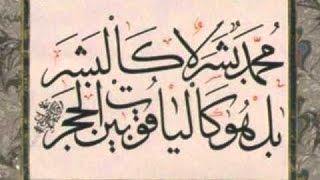 محمد بشر لا كالبشر
بل هو كاليا قوت بين الحجر